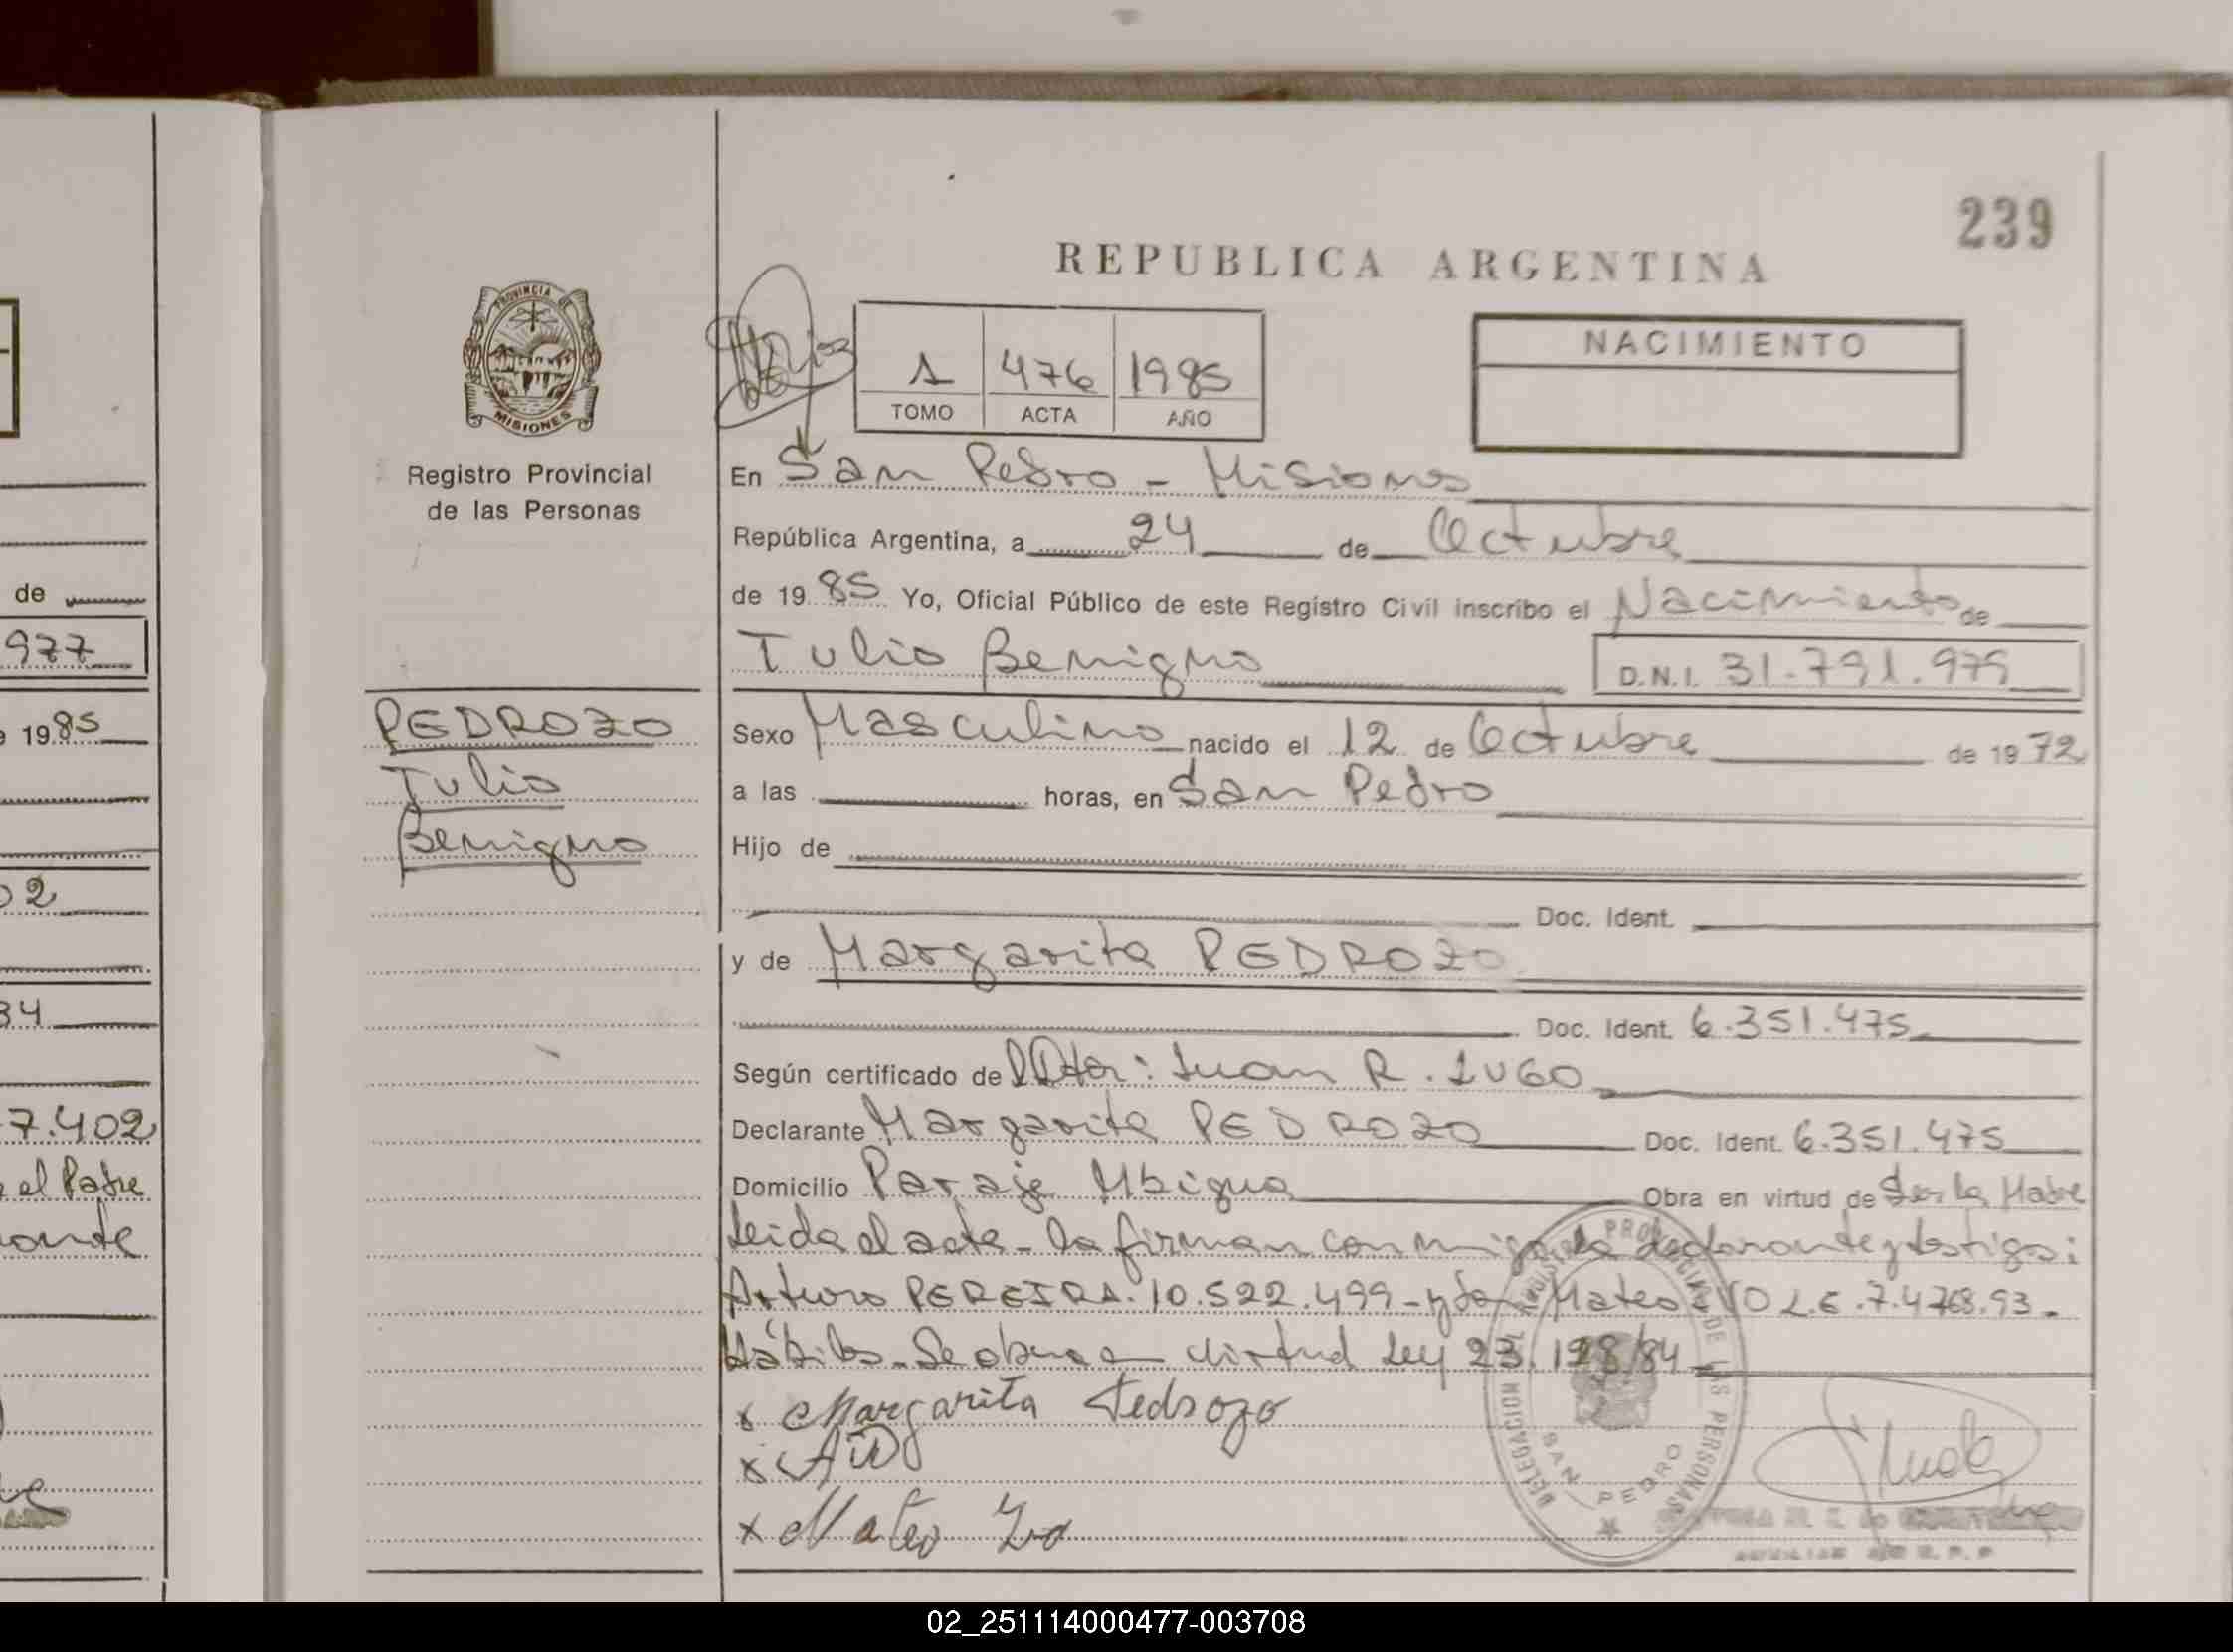 239
REPUBLICA ARGENTINA
PROVINCIA DE
MISIONES
Registro Provincial
de las Personas
1 476 1985
TOMO ACTA AÑO
NACIMIENTO
En San Pedro - Misiones
República Argentina, a 24 de Octubre
de 1985 Yo, Oficial Público de este Registro Civil inscribo el Nacimiento de
Tulio Benigno D.N.I. 31.791.979
PEDROZO
Tulio
Benigno
Sexo Masculino nacido el 12 de Octubre de 1972
a las horas, en San Pedro
Hijo de
Doc. Ident.
y de Margarita PEDROZO
Doc. Ident. 6.351.475
Según certificado de Juan R. LUGO
Declarante Margarita PEDROZO Doc. Ident. 6.351.475
Domicilio Paraje Mbigua Obra en virtud de Ser la Madre
Leida el acta - la firman conmigo la declarante y testigos:
Arturo PEREIRA. 10.522.499 - y Mateo L.E. 7.4768.93 -
Hábiles. Se obra en virtud Ley 23.128/84
x Margarita Pedrozo
x
x Mateo
DELEGACION
PROVINCIAL DE LAS PERSONAS
SAN PEDRO
de
977
1985
02
34
7.402
el Padre
02_251114000477-003708